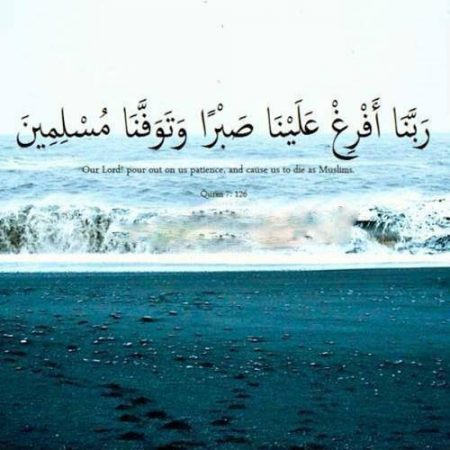 رَبَّنَا أَفْرِغْ عَلَيْنَا صَبْرًا وَتَوَفَّنَا مُسْلِمِينَ
Our Lord! pour out on us patience, and cause us to die as Muslims.
Quran 7: 126